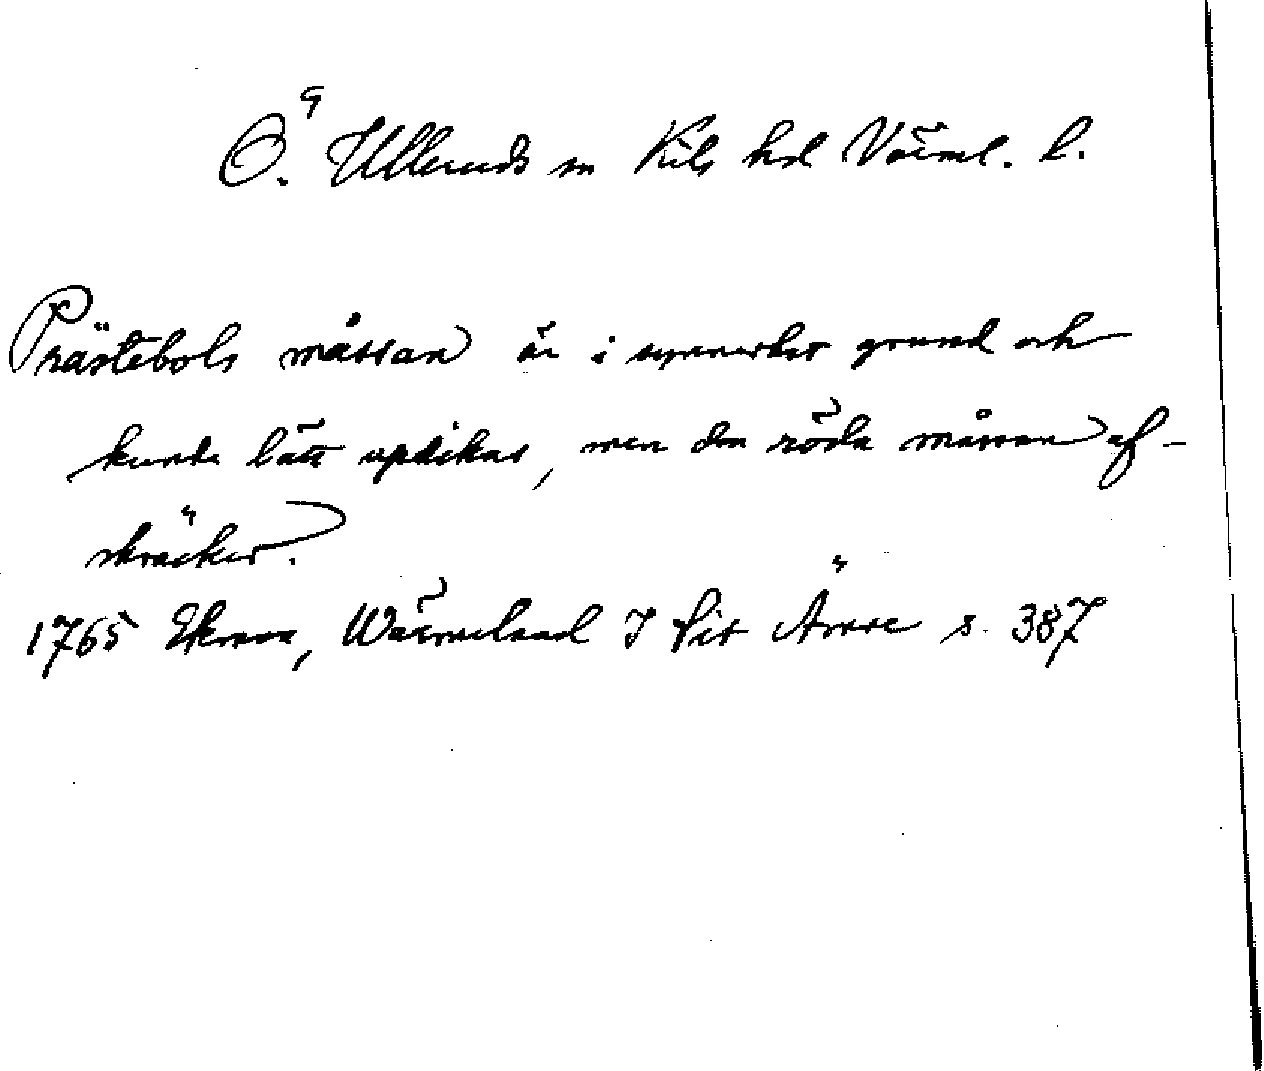 Ö. Ulleruds sn Kils hd Värml. l.
Prästebols måssan är i synnerhet grund och
kunde lätt updikas, men den röda måssan af-
skräcker.
1765 Ekman, Wärmeland I Sit Ämne s. 387